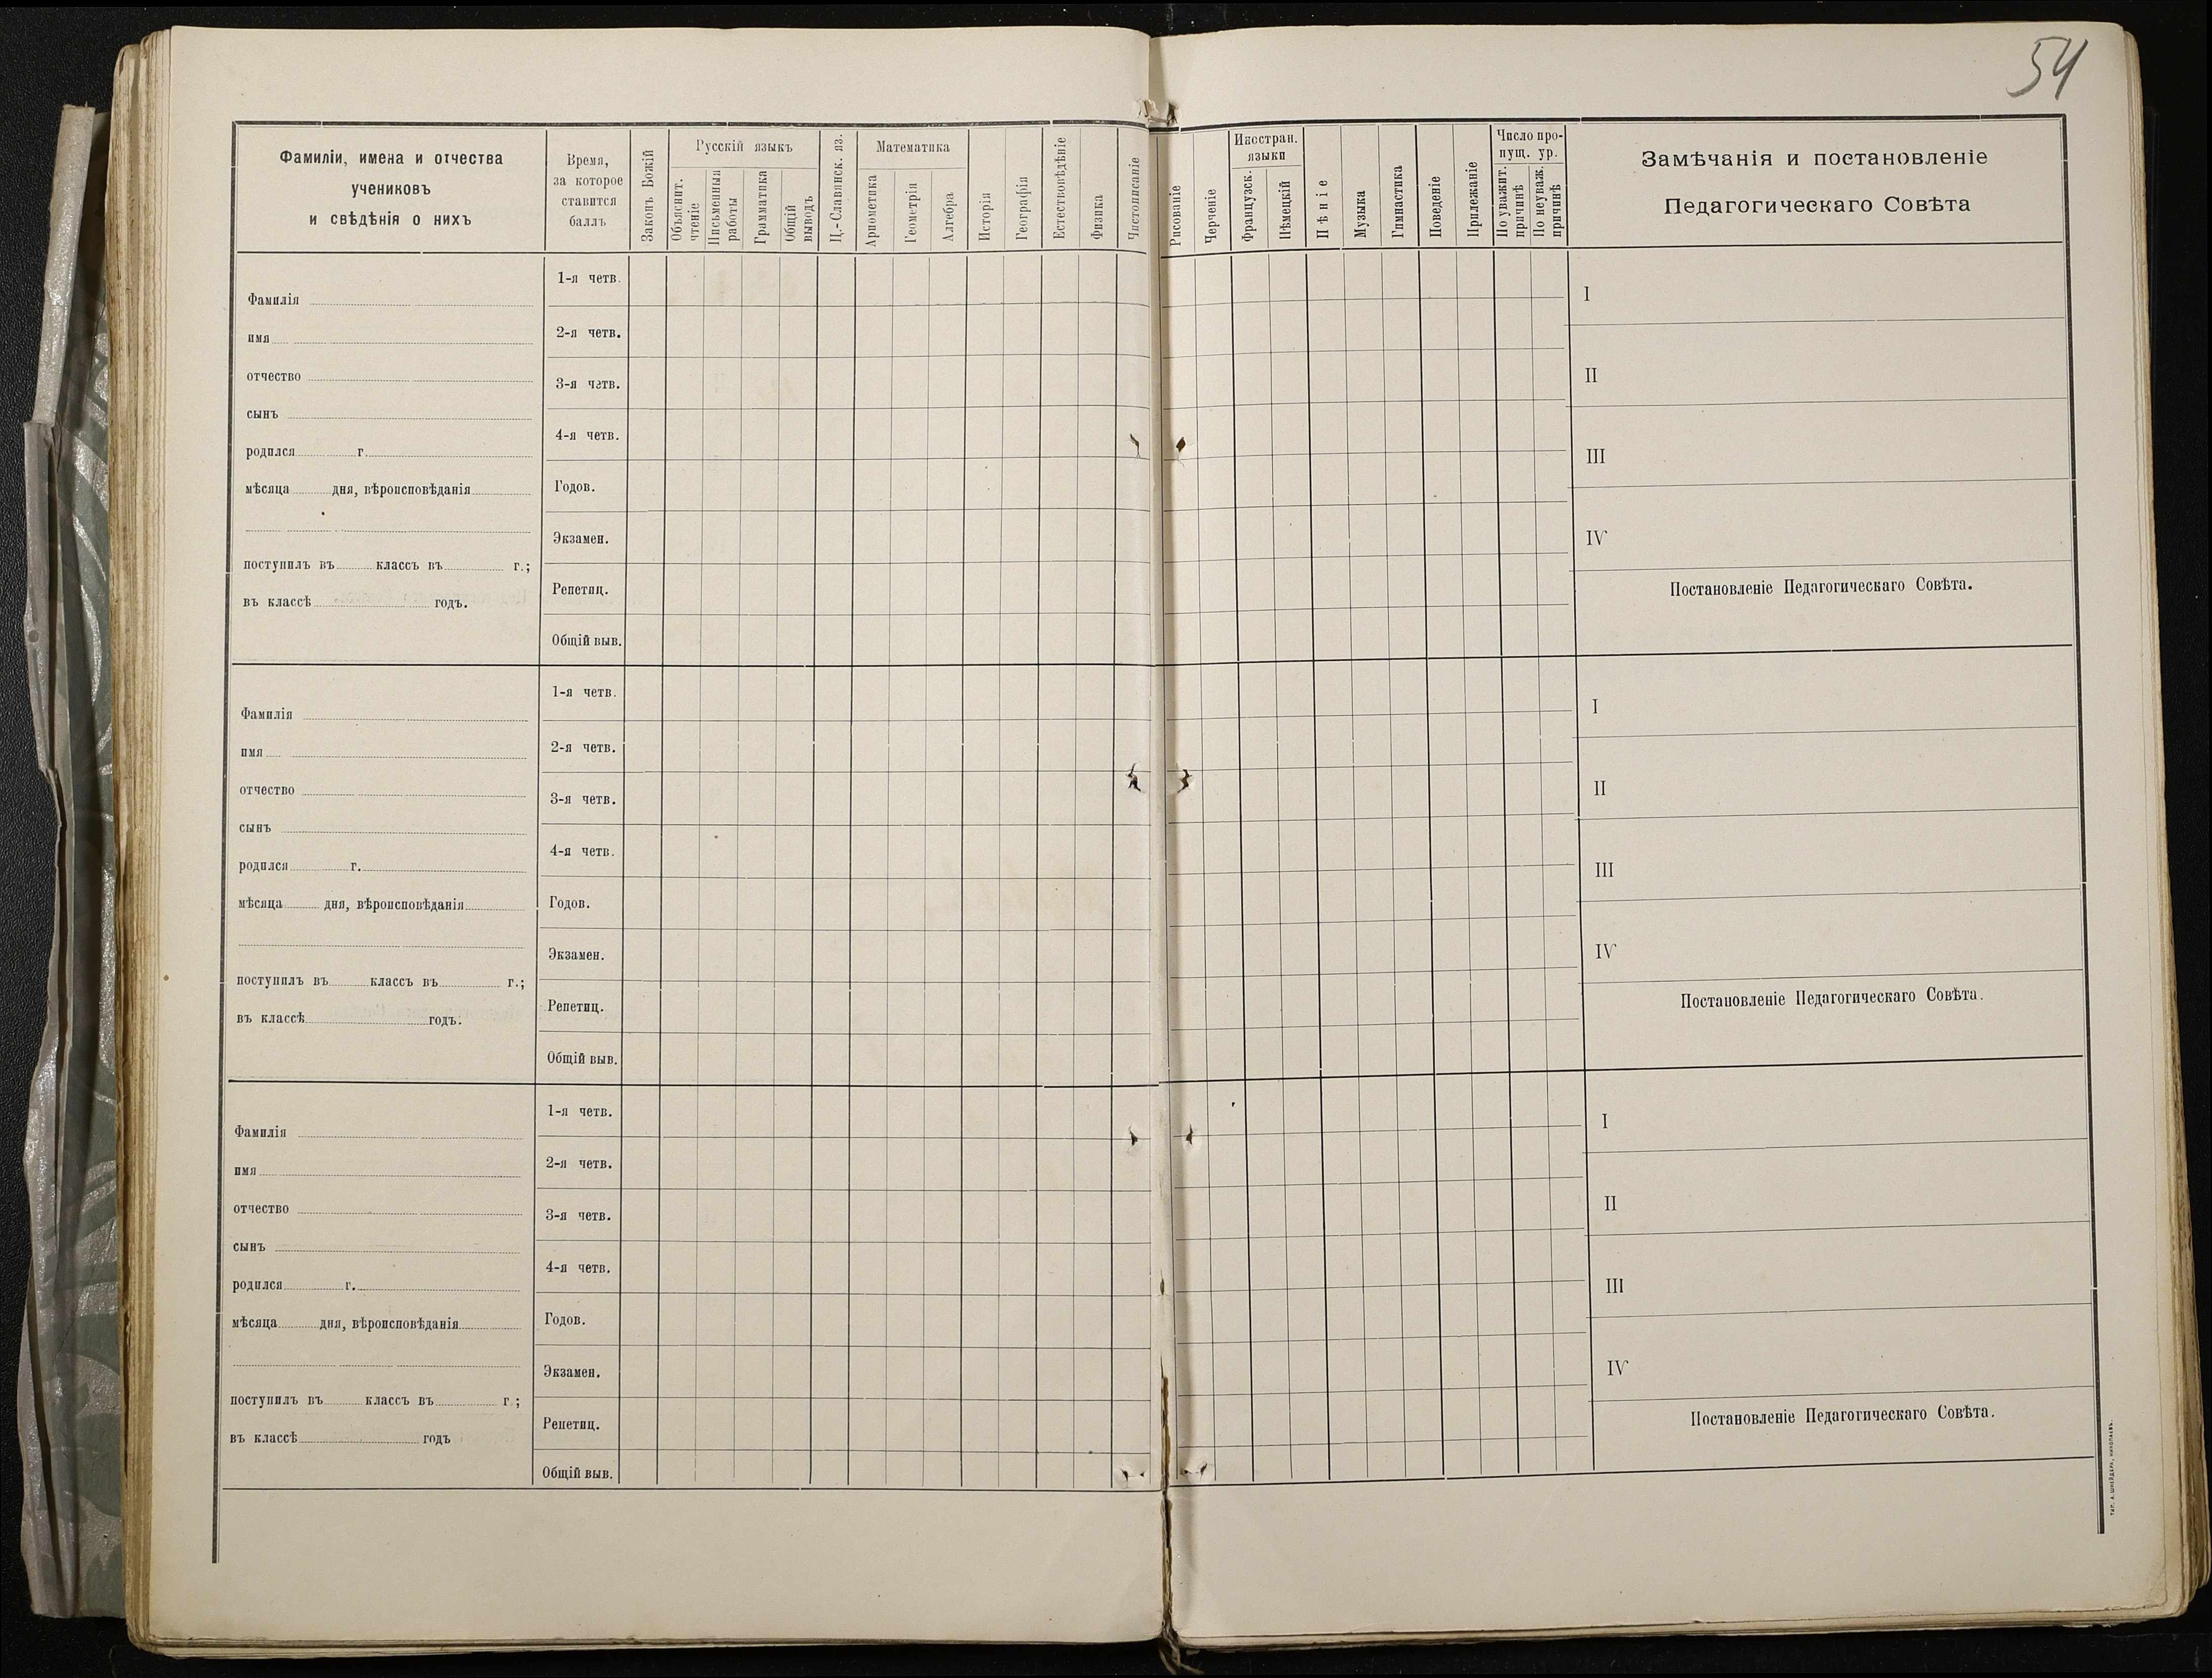 54
Фамиліи, имена и отчества
учениковъ
и свѣдѣнія о нихъ
Время,
за которое
ставится
баллъ
Законъ Божій
Русскій языкъ
Объяснит.
чтеніе
Письменныя
работы
Грамматика
Общій
выводъ
Ц.-Славянск. яз.
Математика
Арифметика
Геометрія
Алгебра
Исторія
Географія
Естествовѣдѣніе
Физика
Чистописаніе
Рисованіе
Черченіе
Иностран.
языки
Французск.
Нѣмецкій
Пѣніе
Музыка
Гимнастика
Поведеніе
Прилежаніе
Число про-
пущ. ур.
По уважит.
причинѣ
По неуваж.
причинѣ
Замѣчанія и постановленіе
Педагогическаго Совѣта
Фамилія
имя
отчество
сынъ
родился г.
мѣсяца дня, вѣроисповѣданія
поступилъ въ классъ въ г.;
въ классѣ годъ.
1-я четв.
2-я четв.
3-я четв.
4-я четв.
Годов.
Экзамен.
Репетиц.
Общій выв.
I
II
III
IV
Постановленіе Педагогическаго Совѣта.
Фамилія
имя
отчество
сынъ
родился г.
мѣсяца дня, вѣроисповѣданія
поступилъ въ классъ въ г.;
въ классѣ годъ.
1-я четв.
2-я четв.
3-я четв.
4-я четв.
Годов.
Экзамен.
Репетиц.
Общій выв.
I
II
III
IV
Постановленіе Педагогическаго Совѣта.
Фамилія
имя
отчество
сынъ
родился г.
мѣсяца дня, вѣроисповѣданія
поступилъ въ классъ въ г.;
въ классѣ годъ
1-я четв.
2-я четв.
3-я четв.
4-я четв.
Годов.
Экзамен.
Репетиц.
Общій выв.
I
II
III
IV
Постановленіе Педагогическаго Совѣта.
ТИП. А. ШНЕЙДЕРЪ, НИКОЛАЕВЪ.